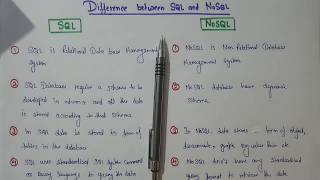 Difference between SQL and NoSQL
SQL
① SQL is Relational Data base Management
System
② SQL Database require a schema to be
developed in advance and all the data
is stored according that Schema
③ In SQL data is stored in form of
tables in the database
④ SQL uses standardised SQL system command
as query language to query the data
NoSQL
① NoSQL is Non Relational Database
Management System
② NoSQL database have dynamic
Schema
③ In NoSQL data store form of object,
documents, graph key value pair etc
④ NoSQL don't have any Standardised
query format to retrieve the data